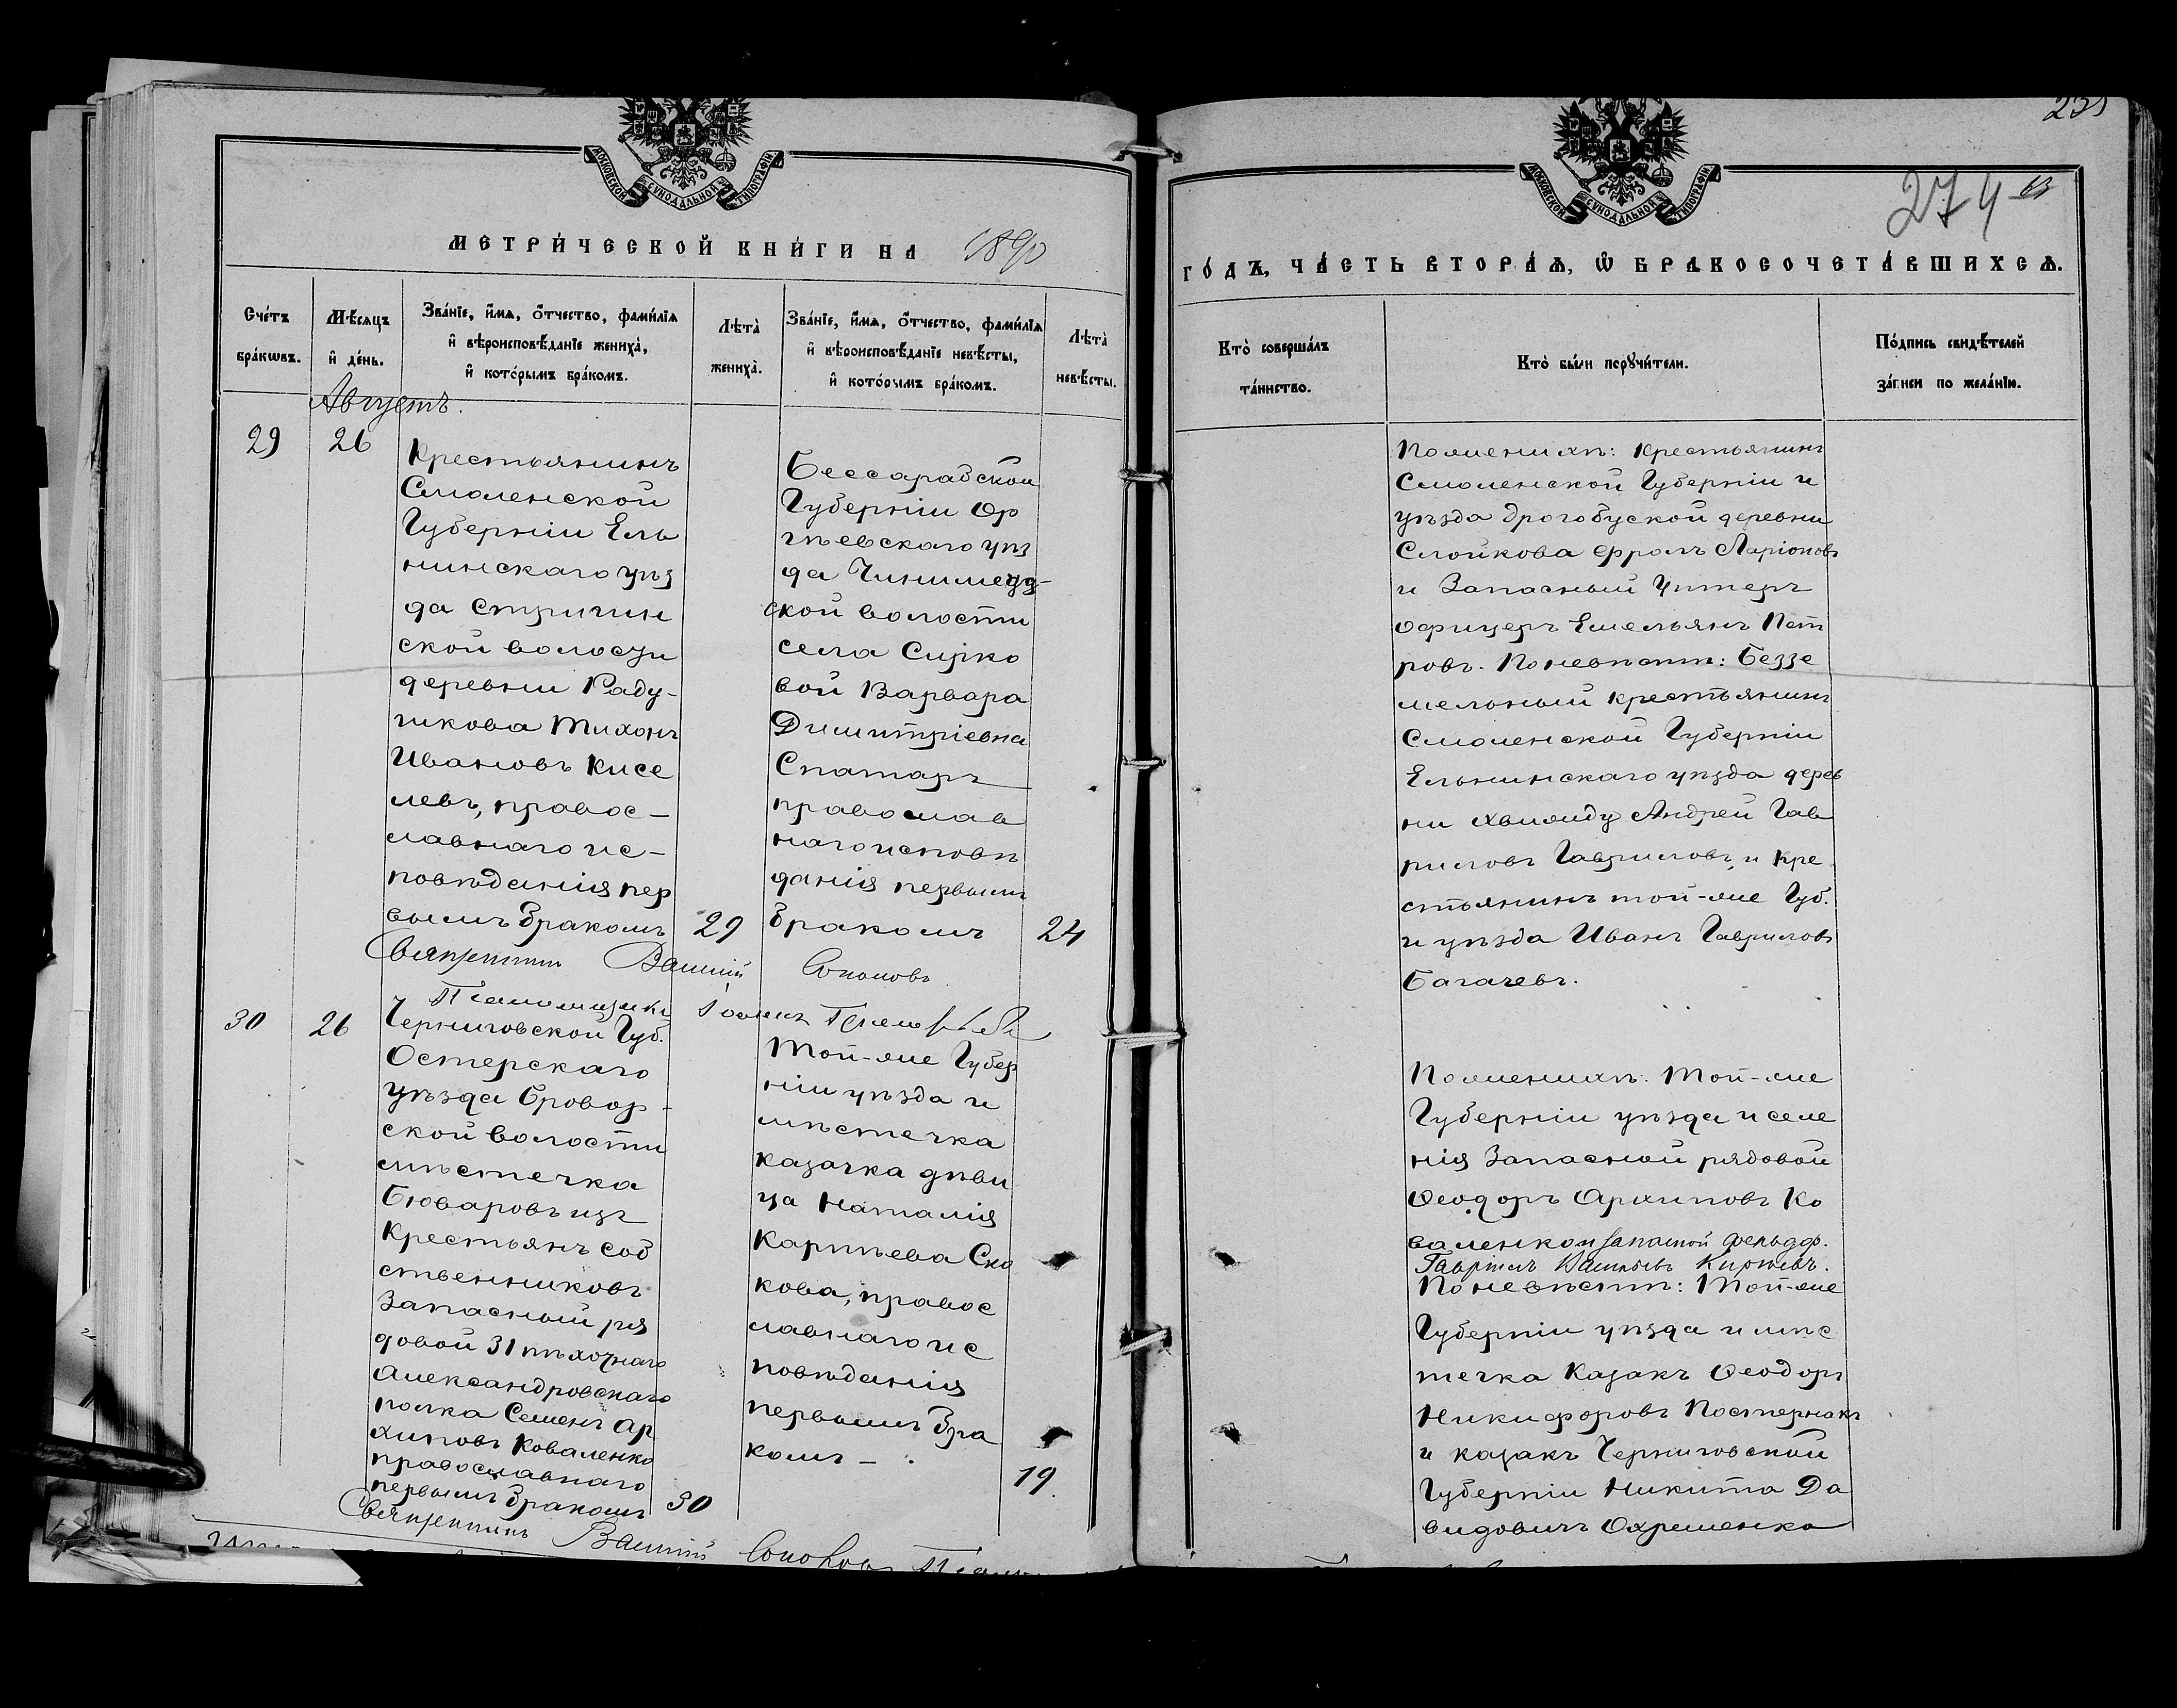 МОСКОВСКОЙ СѴНОДАЛЬНОЙ ТИПОГРАФІИ
МЕТРИ́ЧЕСКОЙ КНИ́ГИ НА 1890
Сче́тъ бра́кѡвъ.
Мѣ́сяцъ и҆ де́нь.
Зва́нїе, и҆́мѧ, ѻ҆́тчество, фами́лїѧ
и҆ вѣроисповѣ́данїе жениха̀,
и҆ кото́рымъ бра́комъ.
Лѣта̀ жениха̀.
Зва́нїе, и҆́мѧ, ѻ҆́тчество, фами́лїѧ
и҆ вѣроисповѣ́данїе невѣ́сты,
и҆ кото́рымъ бра́комъ.
Лѣта̀ невѣ́сты.
Августъ.
29
26
Крестьянинъ
Смоленской
Губерніи Ель
нинскаго уѣз
да Стригин
ской волости
деревни Раду-
Тихонъ
Ивановъ Кисе
левъ, правос-
лавнаго ис-
повѣданія пер
вымъ бракомъ
29
Бессарабской
Губерніи Ор
гѣевскаго уѣз
да
ской волости
села Сирко
вой Варвара
Димитріевна
Спатарь
православ
наго исповѣ
данія первымъ
бракомъ
24
Священникъ Василій Соколовъ
Псаломщикъ Іоаннъ
30
26
Черниговской Губ.
Остерскаго
уѣзда Бровар-
ской волости
мѣстечка
Броваровъ изъ
Крестьянъ соб
ственниковъ
Запасный ря
довой 31 пѣхотнаго
Александровскаго
полка Семенъ Ар
хиповъ Коваленко
православнаго
первымъ бракомъ
30
Той-же Губер
ніи уѣзда и
мѣстечка
казачка дѣви
ца Наталія
Карпѣева Ско
кова, правос
лавнаго ис
повѣданія
первымъ бра
комъ -
19.
Священникъ Василій Соколовъ
МОСКОВСКОЙ СѴНОДАЛЬНОЙ ТИПОГРАФІИ
274
ГО́ДЪ, ЧА́СТЬ ВТОРА́Ѧ, Ѡ҆ БРАКОСОЧЕТА́ВШИХСѦ.
Кто̀ соверша́лъ
та́инство.
Кто̀ бы́ли порꙋчи́тели.
По́дпись свидѣ́телей
за́писи по жела́нїю.
По женихѣ: Крестьянинъ
Смоленской Губерніи и
уѣзда Дрогобуской деревни
Слойкова Фролъ Ларіоновъ
и Запасный Унтеръ
офицеръ Емельянъ Пет
ровъ. По невѣстѣ: Беззе
мельный крестьянинъ
Смоленской Губерніи
Ельнинскаго уѣзда дерев
ни Андрей Гав
риловъ Гавриловъ, и Кре
стьянинъ той-же Губ.
и уѣзда Иванъ Гавриловъ
Багачевъ.
По женихѣ: Той-же
Губерніи уѣзда и селе
нія Запасной рядовой
Ѳеодоръ Архиповъ Ко
валенко и запасной
Гавріилъ Васильевъ
По невѣстѣ: Той-же
Губерніи уѣзда и мѣс
течка Казакъ Ѳеодоръ
Никифоровъ Постернакъ
и казакъ Черниговской
Губерніи Никита Да
видовичъ Охрешенко